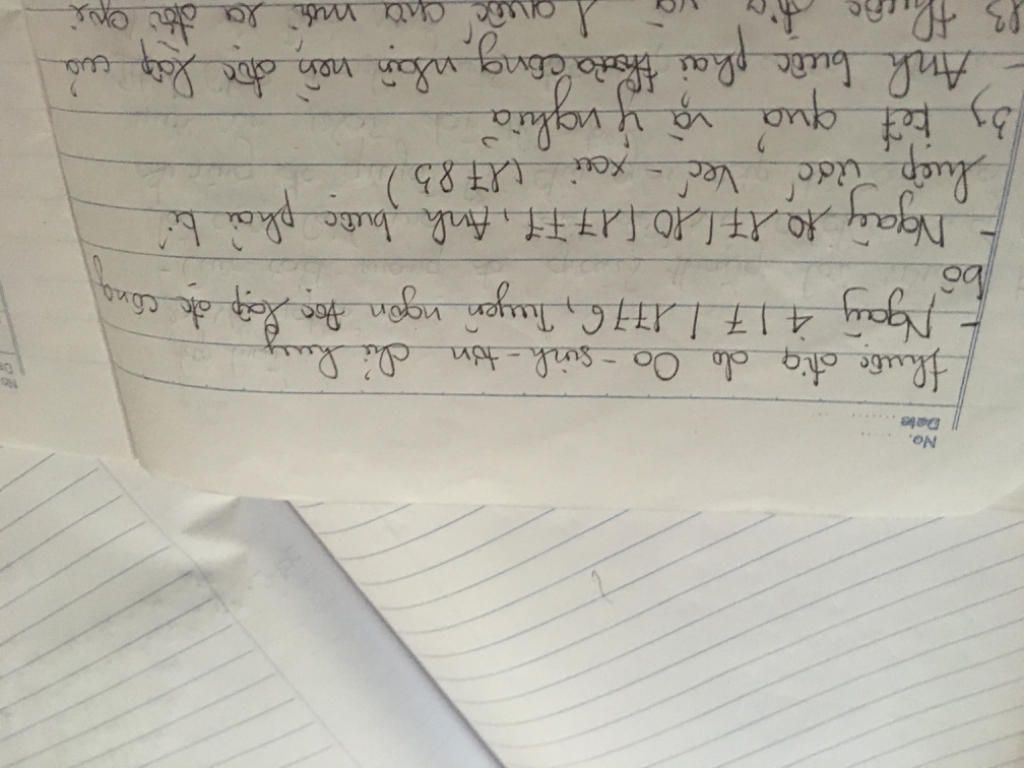 No.
Date
thuộc địa do Oa-sinh-tơn chỉ huy
- Ngày 4/7/1776, Tuyên ngôn độc lập đc công
bố
- Ngày 17/10/1777, Anh buộc phải kí
hiệp ước Véc-xai (1783)
3, kết quả và ý nghĩa
- Anh buộc phải công nhận nền độc lập của
13 thuộc địa và 1 quốc gia mới ra đời